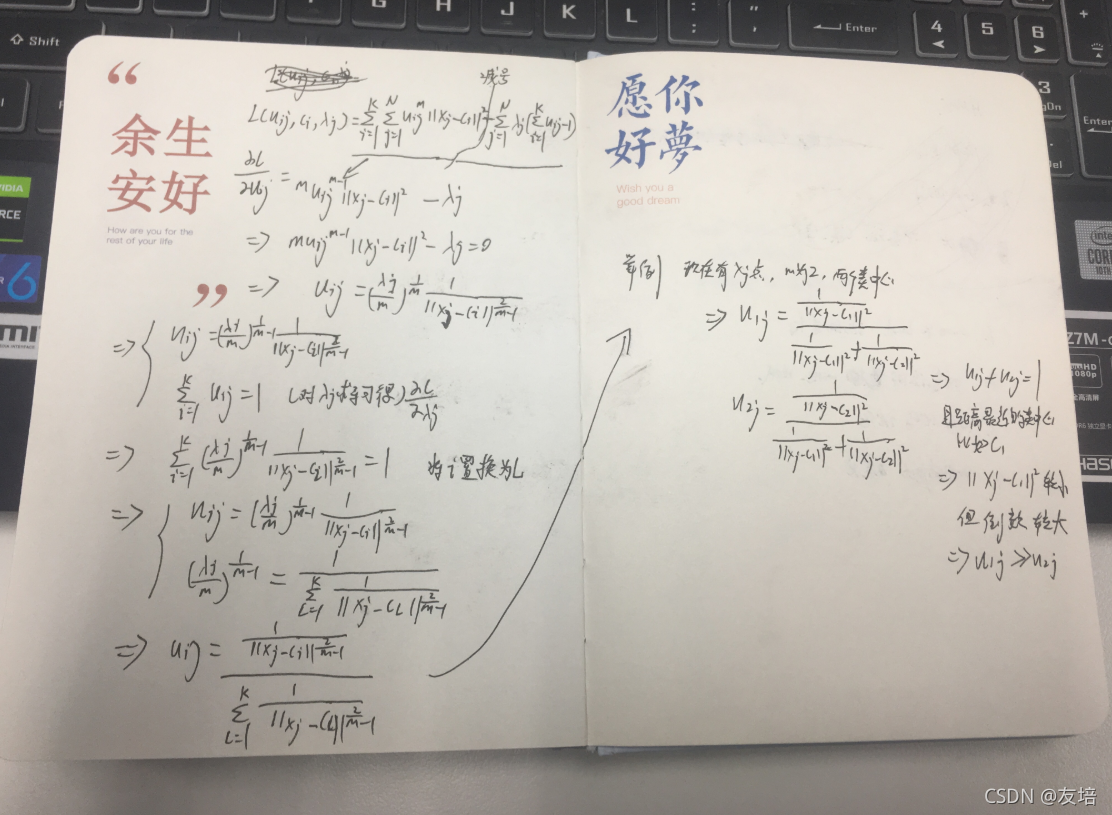 G H J K L : ; " ' Enter 4 5 6
Shift
“
余生
安好
How are you for the
rest of your life
”
减号
L(uij, ci, λj) = ∑_{i=1}^{K} ∑_{j=1}^{N} uij^m ||xj-ci||² - ∑_{j=1}^{N} λj(∑_{i=1}^{K} uij-1)
∂L/∂uij = m uij^{m-1} ||xj-ci||² - λj
=> m uij^{m-1} ||xj-ci||² - λj = 0
=> uij = (λj/m)^{1/m-1} 1/||xj-ci||^{2/m-1}
=> { uij = (λj/m)^{1/m-1} 1/||xj-ci||^{2/m-1}
∑_{i=1}^{K} uij = 1 (对λj求导可得) ∂L/∂λj
=> ∑_{i=1}^{K} (λj/m)^{1/m-1} 1/||xj-ci||^{2/m-1} = 1 将i置换为L
=> { uij = (λj/m)^{1/m-1} 1/||xj-ci||^{2/m-1}
(λj/m)^{1/m-1} = 1/∑_{L=1}^{K} 1/||xj-cL||^{2/m-1}
=> uij = 1/||xj-ci||^{2/m-1} / ∑_{L=1}^{K} 1/||xj-cL||^{2/m-1}
愿你
好夢
Wish you a
good dream
举例 现在有xj点, m为2, 两个类中心
=> u1j = 1/||xj-c1||² / 1/||xj-c1||² + 1/||xj-c2||²
u2j = 1/||xj-c2||² / 1/||xj-c1||² + 1/||xj-c2||²
=> u1j + u2j = 1
且距离最近的类中心
比如c1
=> ||xj-c1||² 较小
但倒数较大
=> u1j >> u2j
NVIDIA
intel
CORE
1080p
Enter
CSDN @友培